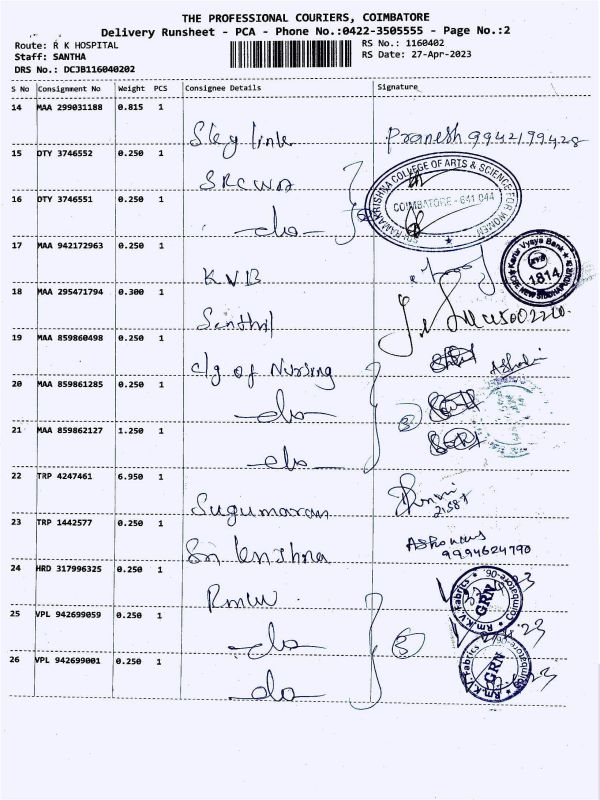 THE PROFESSIONAL COURIERS, COIMBATORE
Delivery Runsheet - PCA - Phone No.:0422-3505555 - Page No.:2
Route: R K HOSPITAL
Staff: SANTHA
DRS No.: DCJB116040202
RS No.: 1160402
RS Date: 27-Apr-2023
S No Consignment No Weight PCS Consignee Details Signature
14 MAA 299031188 0.815 1
Sky link Pranesh 9942199428
15 DTY 3746552 0.250 1
SRCWA
16 DTY 3746551 0.250 1
-do-
SRI RAMAKRISHNA COLLEGE OF ARTS & SCIENCE FOR WOMEN
COIMBATORE - 641 044
17 MAA 942172963 0.250 1
KVB
Karur Vysya Bank
1814
18 MAA 295471794 0.300 1
Senthil
19 MAA 859860498 0.250 1
clg of Nursing
20 MAA 859861285 0.250 1
-do-
3
21 MAA 859862127 1.250 1
-do-
22 TRP 4247461 6.950 1
Sugumaran
21587
23 TRP 1442577 0.250 1
Sri Krishna
9994624790
24 HRD 317996325 0.250 1
RMKV
Rm.K.V. Fabrics
GRN
Coimbatore-06.
25 VPL 942699059 0.250 1
-do-
3
26 VPL 942699001 0.250 1
-do-
Rm.K.V. Fabrics
GRN
Coimbatore-06.